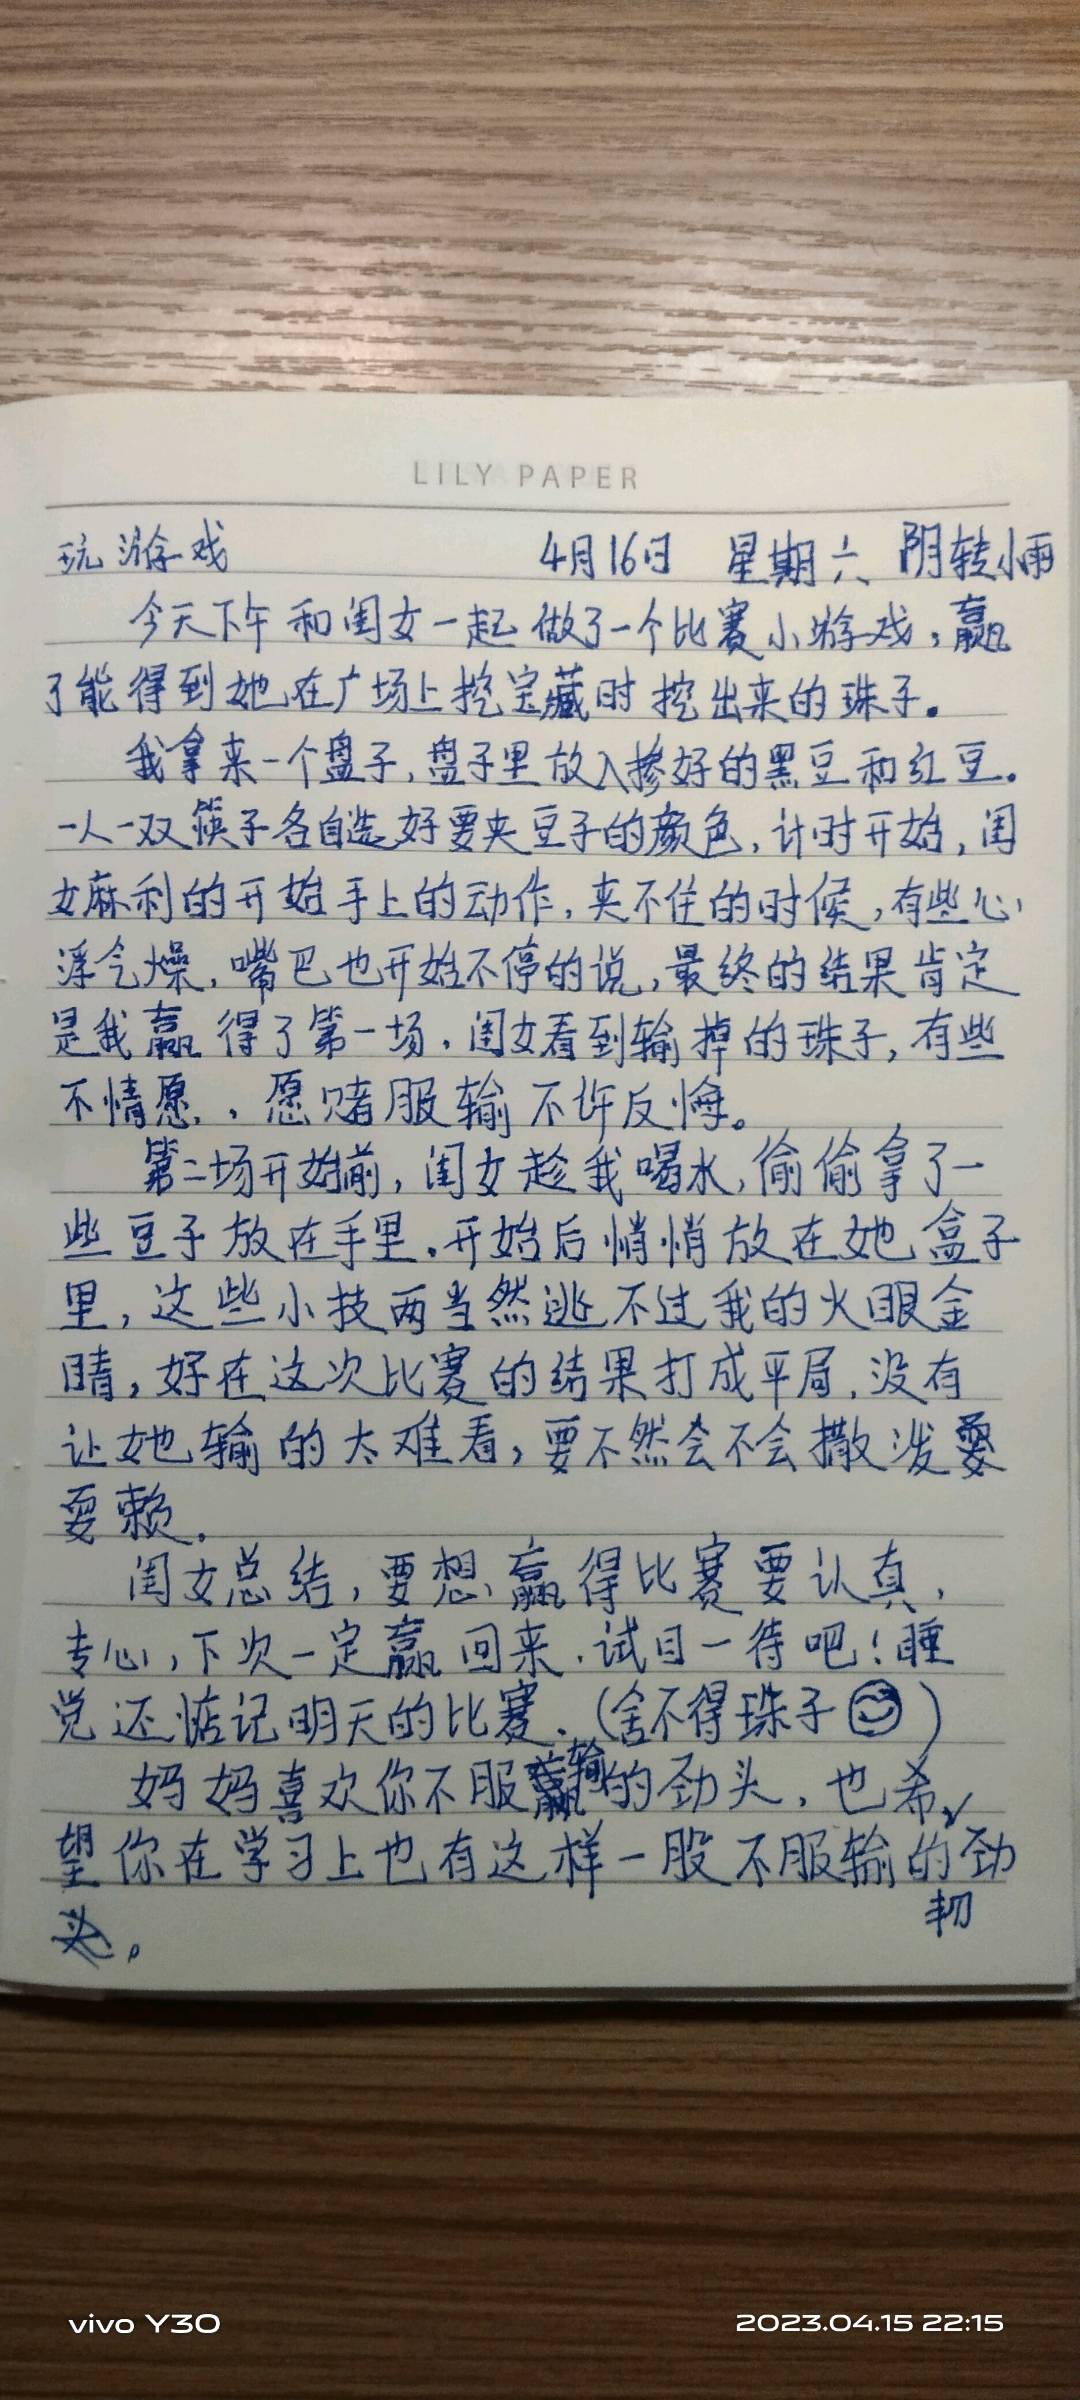 LILY PAPER
玩游戏 4月16日 星期六 阴转小雨
今天下午和闺女一起做了一个比赛小游戏，赢
了能得到她在广场上挖宝藏时挖出来的珠子。
我拿来一个盘子，盘子里放入掺好的黑豆和红豆。
一人一双筷子各自选好要夹豆子的颜色，计时开始，闺
女麻利的开始手上的动作，夹不住的时候，有些心
浮气燥，嘴巴也开始不停的说，最终的结果肯定
是我赢得了第一场。闺女看到输掉的珠子，有些
不情愿，，愿赌服输不许反悔。
第二场开始前，闺女趁我喝水，偷偷拿了一
些豆子放在手里。开始后悄悄放在她盒子
里，这些小技两当然逃不过我的火眼金
睛，好在这次比赛的结果打成平局，没有
让她输的太难看，要不然会不会撒泼
耍赖。
闺女总结，要想赢得比赛要认真，
专心，下次一定赢回来，试目一待吧！睡
觉还惦记明天的比赛.（舍不得珠子😊）
妈妈喜欢你不服输的劲头，也希
望你在学习上也有这样一股不服输的劲
头。
vivo Y30
2023.04.15 22:15